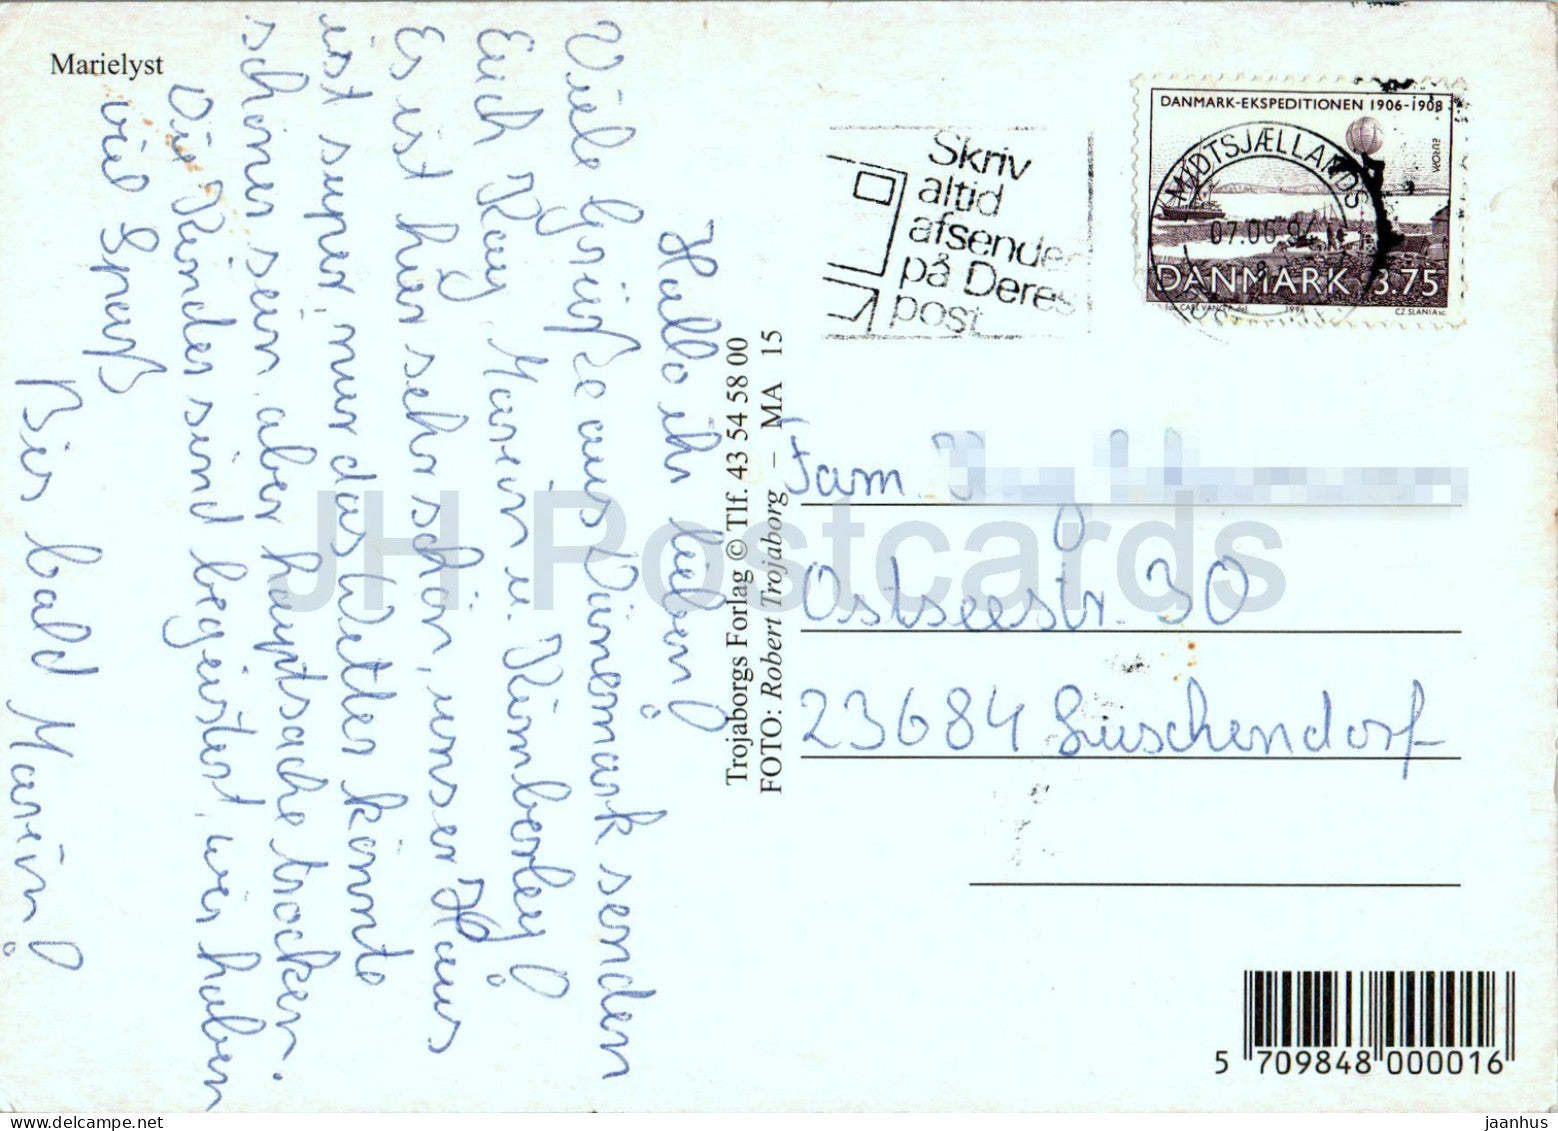 Marielyst
Hallo ihr lieben!
Viele Grüße aus Dänemark senden
Euch Kay, Marein u. Kimberley!
Es ist hier sehr schön, unser Haus
ist super, nur das Wetter könnte
schöner sein, aber hauptsache trocken.
Die Kinder sind begeistert, wir haben
viel Spaß
Bis bald Marein!
Trojaborgs Forlag © Tlf. 43 54 58 00
FOTO: Robert Trojaborg – MA 15
Skriv
altid
afsender
på Deres
post
DANMARK-EKSPEDITIONEN 1906-1908
EUROPA
MIDTSJÆLLANDS
07.06.94
DANMARK 3.75
1994
CZ SLANIA sc.
Fam.
Ostseestr. 30
23684 Luschendorf
5 709848 000016
JH Postcards
jaanhus